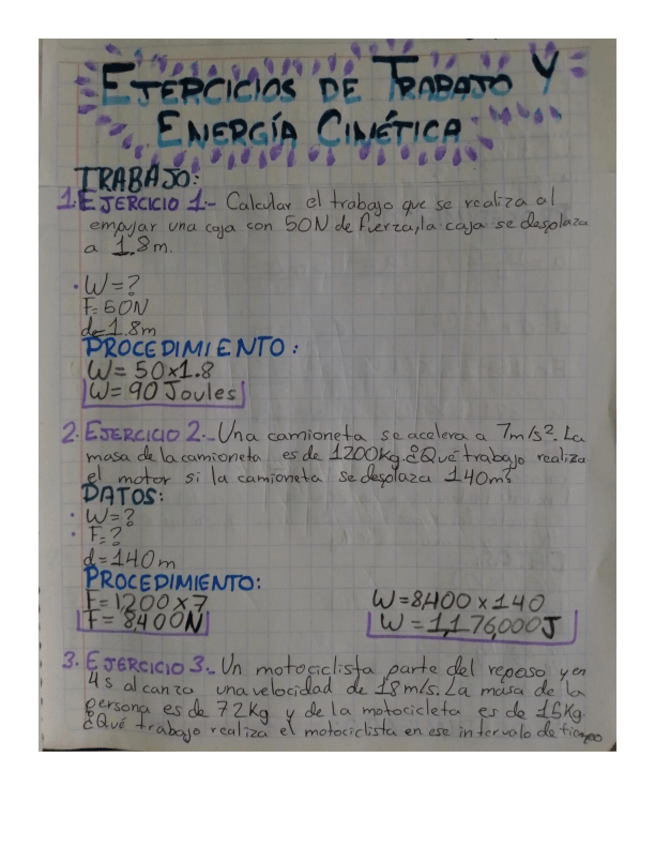 EJERCICIOS DE TRABAJO Y
ENERGÍA CINÉTICA
TRABAJO:
1. EJERCICIO 1.- Calcular el trabajo que se realiza al
empujar una caja con 50N de fuerza, la caja se desplaza
a 1.8m.
· W=?
F=50N
d=1.8m
PROCEDIMIENTO:
W= 50x1.8
W= 90 Joules
2. EJERCICIO 2.- Una camioneta se acelera a 7m/s². La
masa de la camioneta es de 1200Kg. ¿Qué trabajo realiza
el motor si la camioneta se desplaza 140m?
DATOS:
· W=?
· F=?
d=140m
PROCEDIMIENTO:
F=1,200x7
F= 8,400N
W=8,400x140
W=1,176,000J
3. EJERCICIO 3.- Un motociclista parte del reposo y en
4s alcanza una velocidad de 18m/s. La masa de la
persona es de 72Kg y de la motocicleta es de 15Kg.
¿Qué trabajo realiza el motociclista en ese intervalo de tiempo